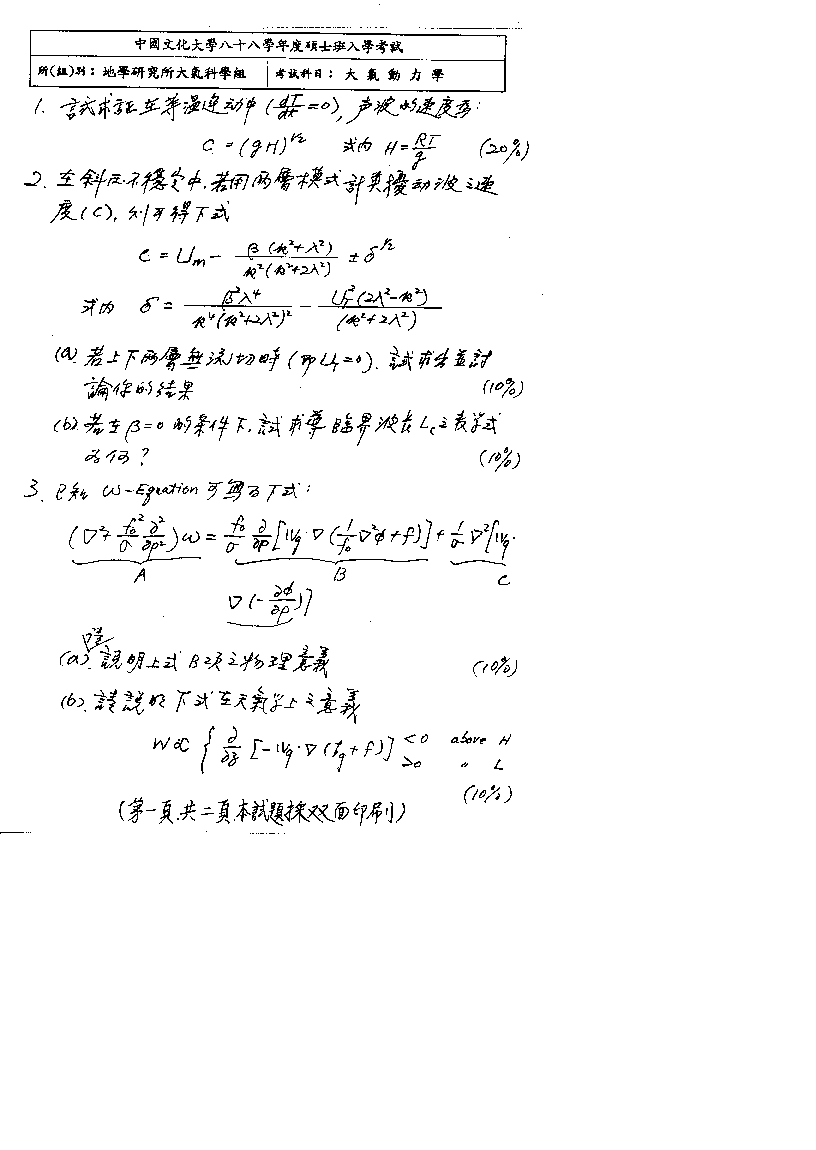 中國文化大學八十八學年度碩士班入學考試
所(組)別：地學研究所大氣科學組 考試科目：大氣動力學
1. 試求証在等溫運动中 (dT/dt = 0), 声波的速度為:
C = (gH)^1/2 式內 H = RT/g (20%)
2. 在斜压不穩定中, 若用兩層模式計算擾动波之速
度(C), 則可得下式
C = Um - β(k²+λ²)/k²(k²+2λ²) ± δ^1/2
式內 δ = β²λ⁴/k⁴(k²+2λ²)² - U_T²(2λ²-k²)/(k²+2λ²)
(a) 若上下兩層無流切時 (即 U_T=0), 試求出並討
論你的結果 (10%)
(b) 若在 β=0 的条件下, 試求導臨界波長 Lc 之表学式
為何? (10%)
3. 已知 ω-Equation 可寫為下式:
(∇² + f₀²/σ ∂²/∂p²)ω = f₀/σ ∂/∂p [Vg·∇(1/f₀ ∇²φ+f)] + 1/σ ∇²[Vg·
A B C
∇(-∂φ/∂p)]
(a) 請說明上式 B 項之物理意義 (10%)
(b) 請說明下式在天氣学上之意義
W ∝ { ∂/∂z [-Vg·∇(ζg+f)] <0 above H
>0 〃 L
(10%)
(第一頁,共二頁,本試題採双面印刷)